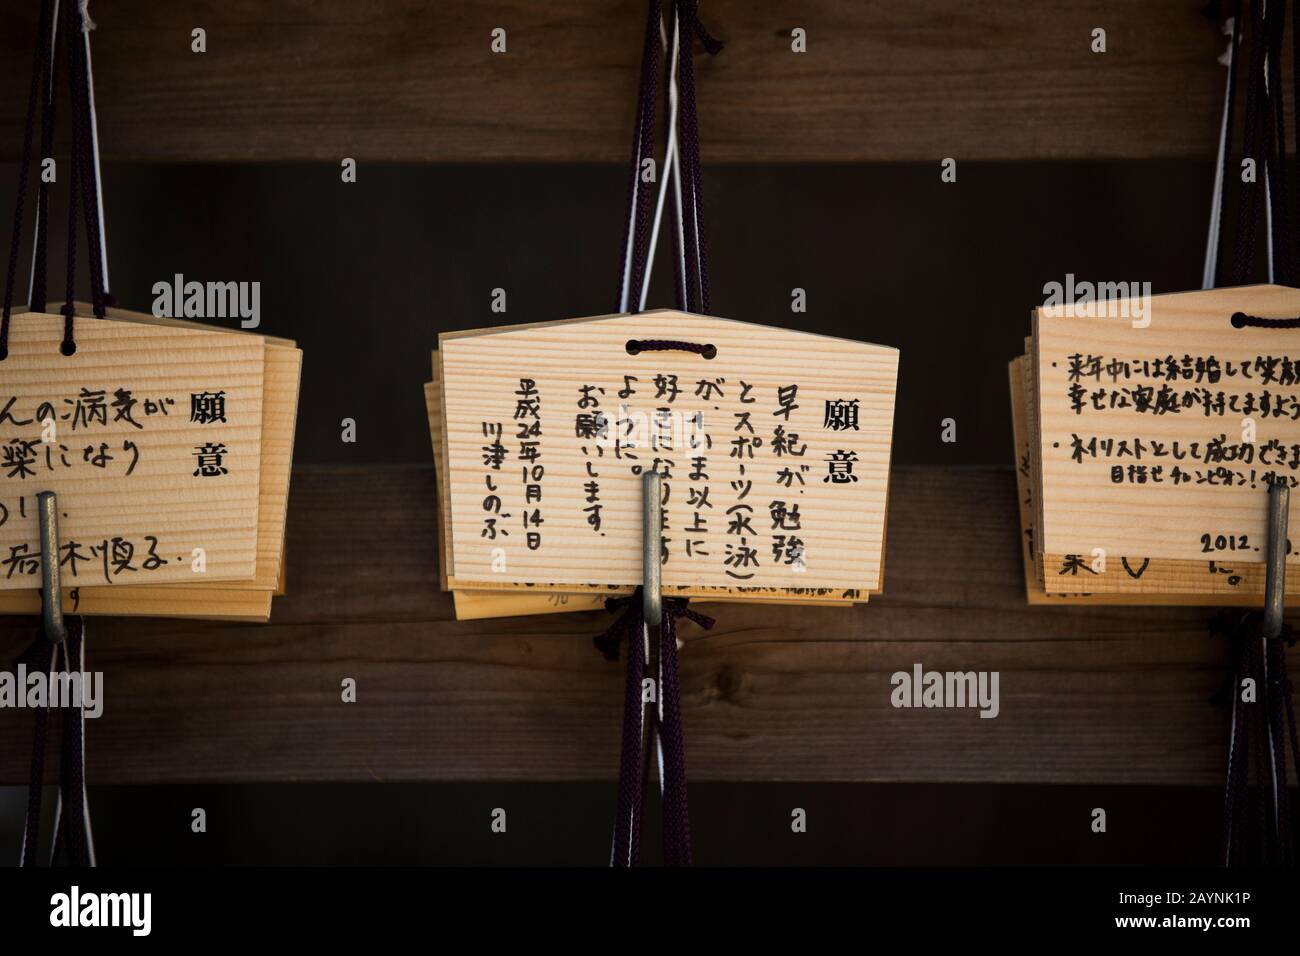 願意
んの病気が
楽になり
願意
早紀が、勉強
とスポーツ(水泳)
が、今以上に
好きになります
ように。
お願いします。
平成24年10月14日
川津しのぶ
・来年中には結婚して笑顔
幸せな家庭が持てますよう
・ネイリストとして成功できま
目指せチャンピオン!
2012.
a alamy
alamy
Image ID: 2AYNK1P
www.alamy.com